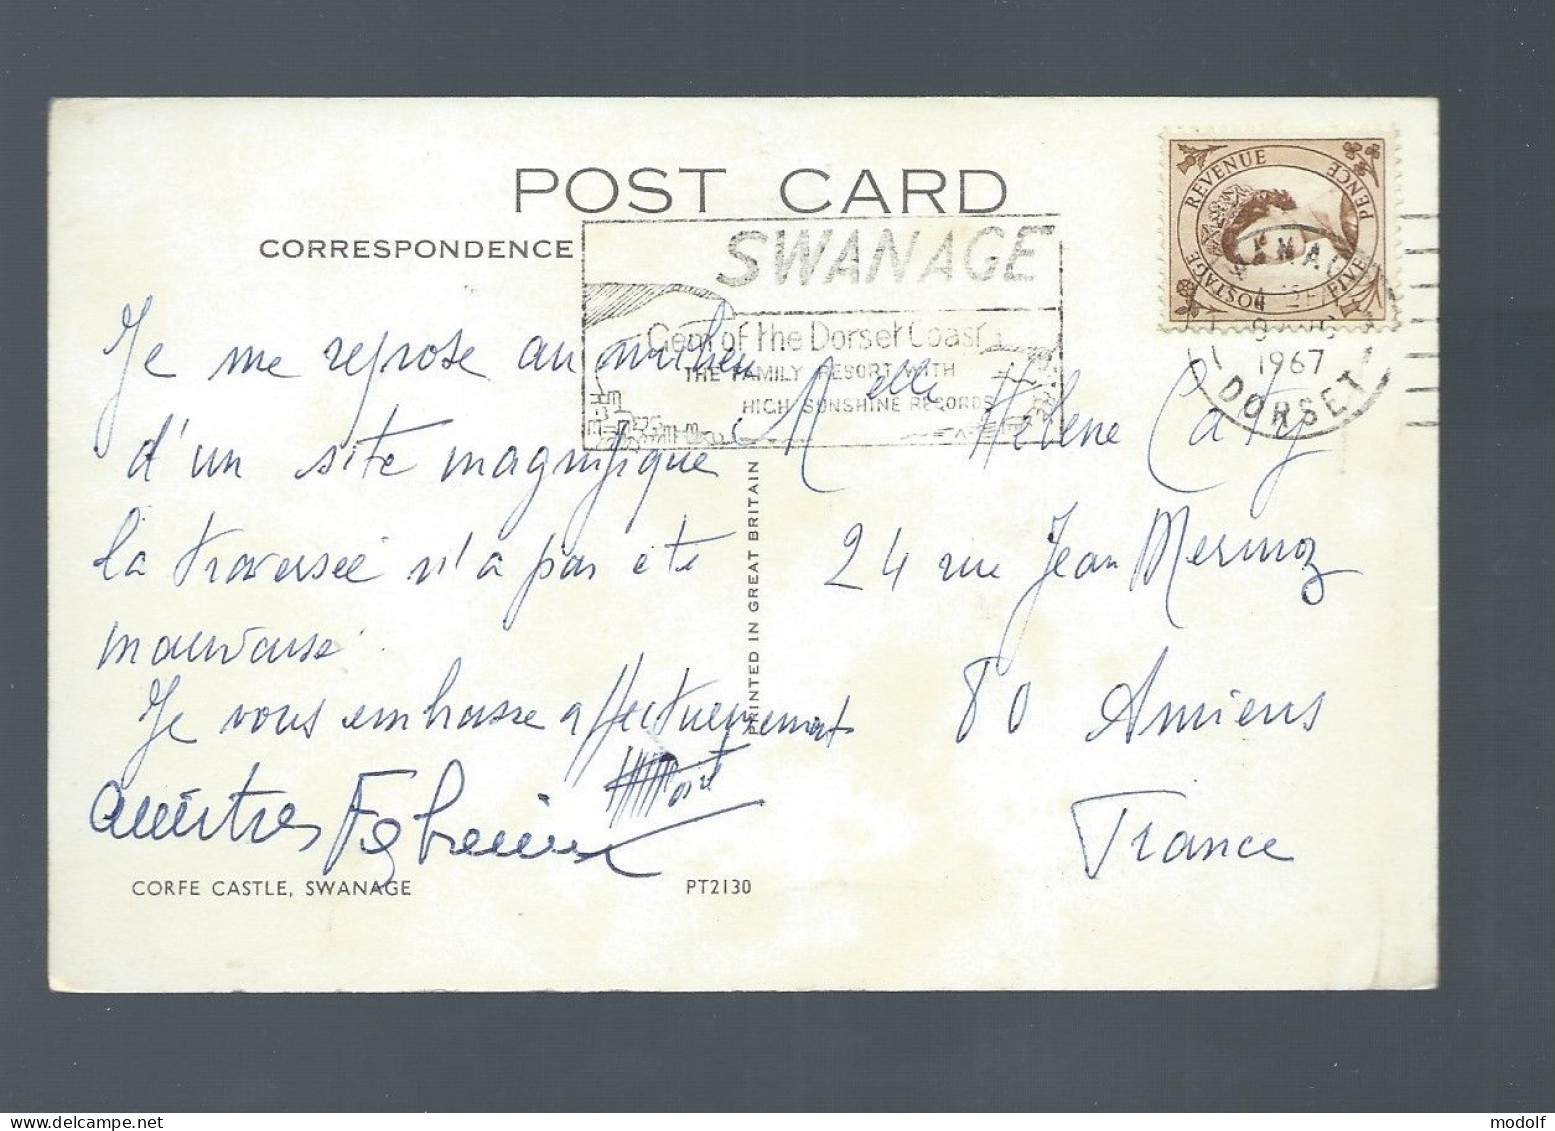 POST CARD
CORRESPONDENCE
SWANAGE
Gem of the Dorset Coast
THE FAMILY RESORT WITH
HIGH SUNSHINE RECORDS
POSTAGE REVENUE
FIVE PENCE
1967
DORSET
Je me repose au milieu
d'un site magnifique
la traversée n'a pas été
mauvaise
Je vous embrasse affectueusement
PRINTED IN GREAT BRITAIN
Melle Hélène Caty
24 rue Jean Mermoz
80 Amiens
France
CORFE CASTLE, SWANAGE
PT2130
modolf